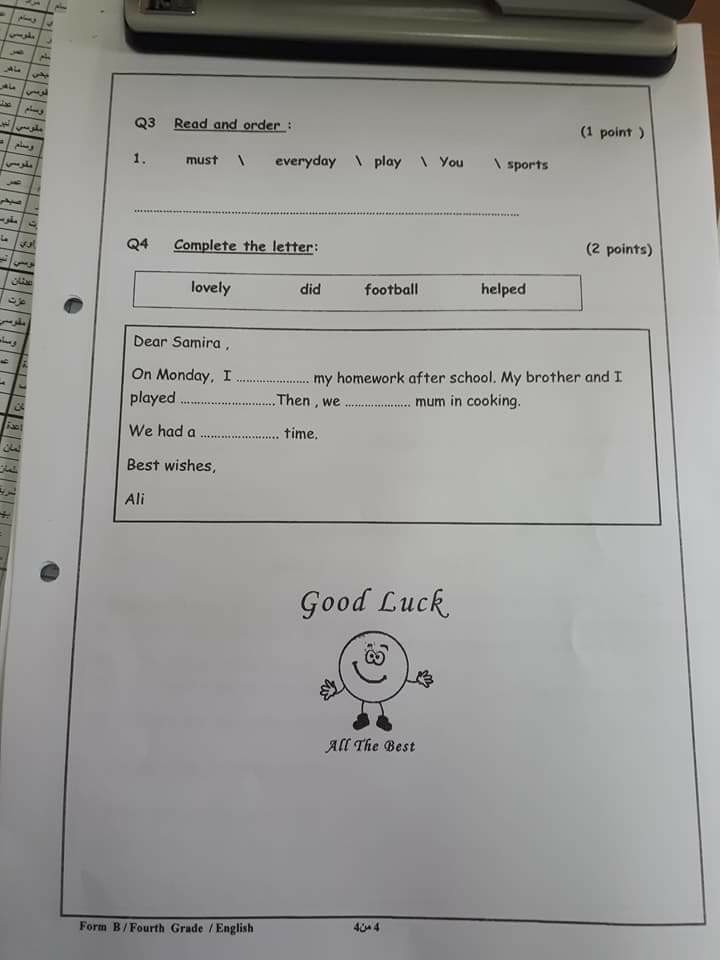 Q3 Read and order : (1 point )
1. must \ everyday \ play \ You \ sports
................................................................................
Q4 Complete the letter: (2 points)
lovely did football helped
Dear Samira ,
On Monday, I ...................... my homework after school. My brother and I
played ............................Then , we .................... mum in cooking.
We had a ........................ time.
Best wishes,
Ali
Good Luck
All The Best
Form B / Fourth Grade / English 4 من 4